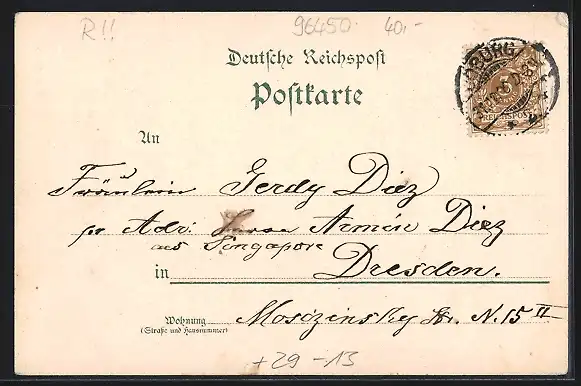 R!! 96450 40,-
Deutsche Reichspost
Postkarte
COBURG
3
REICHSPOST
An
Fräulein Gerdy Diez
pr Adr: Armin Diez
aus Singapore
in Dresden.
Wohnung
(Straße und Hausnummer)
Mosczinsky Str. N. 15 II
+29-13